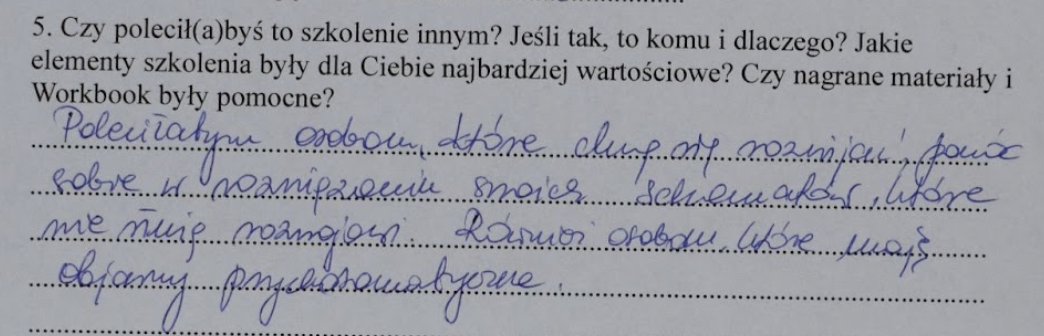 5. Czy polecił(a)byś to szkolenie innym? Jeśli tak, to komu i dlaczego? Jakie
elementy szkolenia były dla Ciebie najbardziej wartościowe? Czy nagrane materiały i
Workbook były pomocne?
Poleciłabym osobom, które chcą się rozwijać, pomóc
sobie w rozwiązaniu swoich schematów, które
nie rozwojowi. Również osobom, które mają
objawy psychosomatyczne.